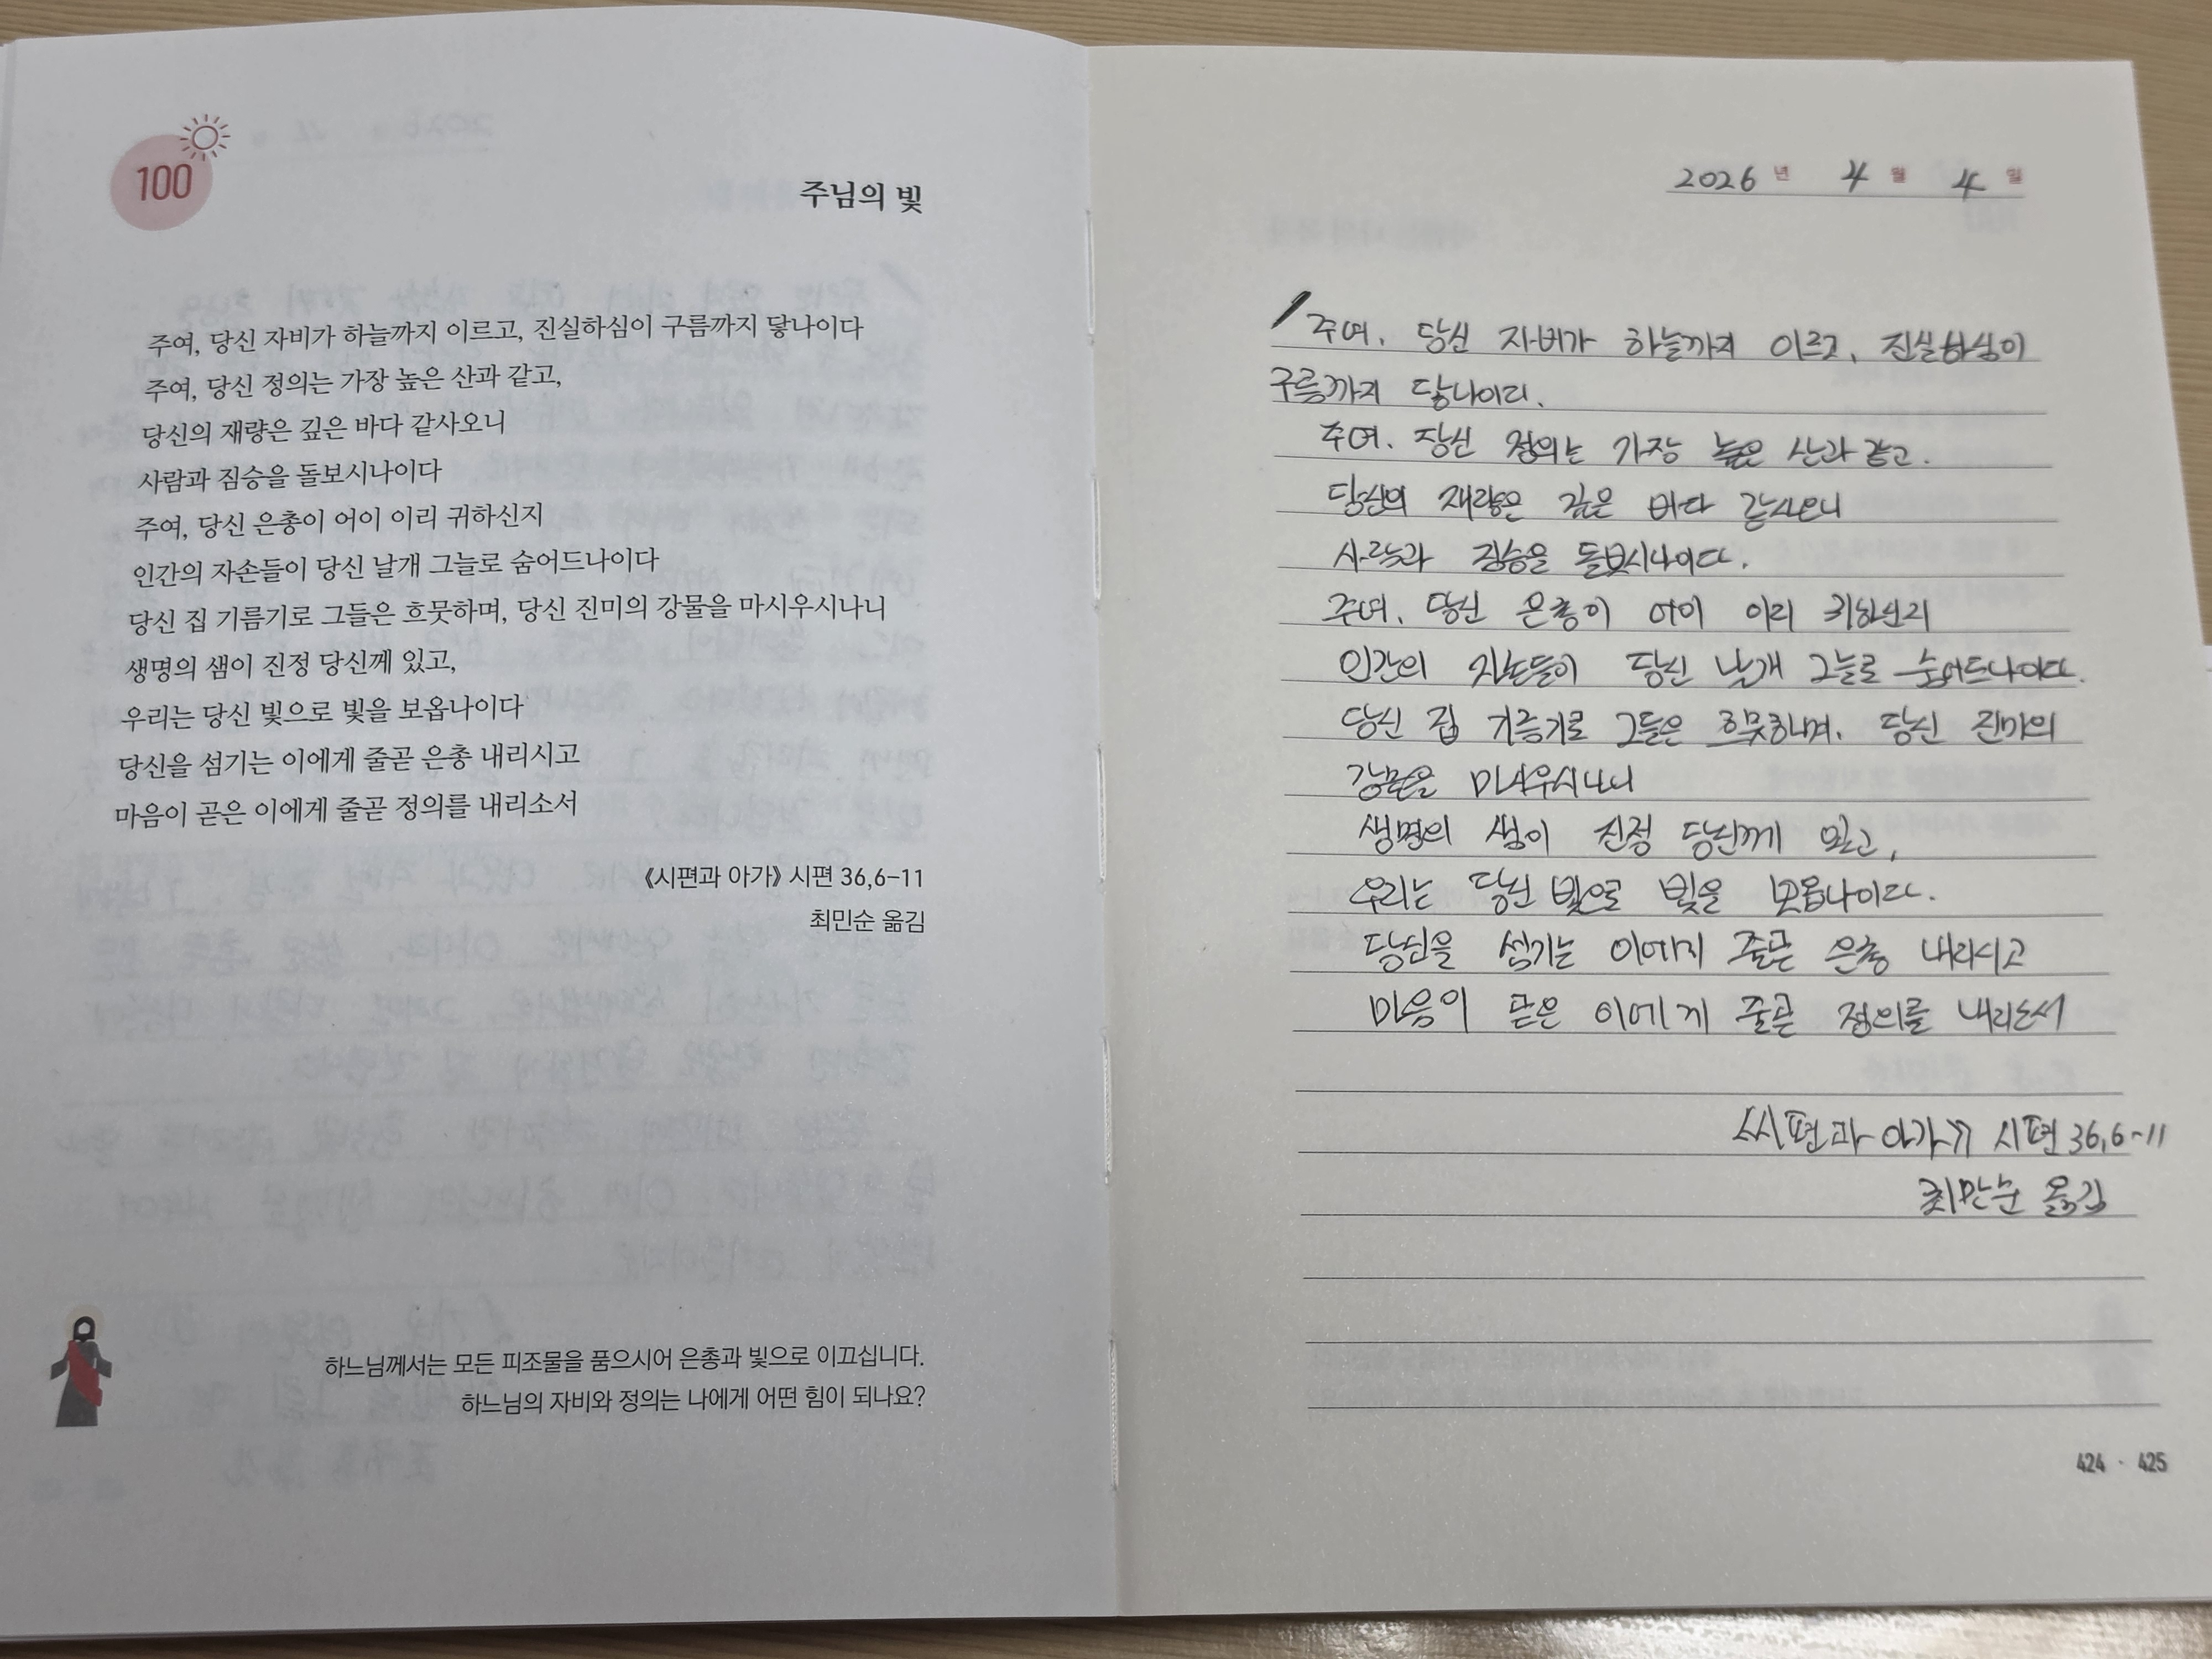 100
주님의 빛
주여, 당신 자비가 하늘까지 이르고, 진실하심이 구름까지 닿나이다
주여, 당신 정의는 가장 높은 산과 같고,
당신의 재량은 깊은 바다 같사오니
사람과 짐승을 돌보시나이다
주여, 당신 은총이 어이 이리 귀하신지
인간의 자손들이 당신 날개 그늘로 숨어드나이다
당신 집 기름기로 그들은 흐뭇하며, 당신 진미의 강물을 마시우시나니
생명의 샘이 진정 당신께 있고,
우리는 당신 빛으로 빛을 보옵나이다
당신을 섬기는 이에게 줄곧 은총 내리시고
마음이 곧은 이에게 줄곧 정의를 내리소서
《시편과 아가》 시편 36,6-11
최민순 옮김
하느님께서는 모든 피조물을 품으시어 은총과 빛으로 이끄십니다.
하느님의 자비와 정의는 나에게 어떤 힘이 되나요?
2026 년 4 월 4 일
주여, 당신 자비가 하늘까지 이르고, 진실하심이
구름까지 닿나이다.
주여, 당신 정의는 가장 높은 산과 같고.
당신의 재량은 깊은 바다 같사오니
사람과 짐승을 돌보시나이다.
주여, 당신 은총이 어이 이리 귀하신지
인간의 자손들이 당신 날개 그늘로 숨어드나이다.
당신 집 기름기로 그들은 흐뭇하며, 당신 진미의
강물을 마시우시나니
생명의 샘이 진정 당신께 있고,
우리는 당신 빛으로 빛을 보옵나이다.
당신을 섬기는 이에게 줄곧 은총 내리시고
마음이 곧은 이에게 줄곧 정의를 내리소서
《시편과 아가》 시편 36,6-11
최민순 옮김
424 · 425